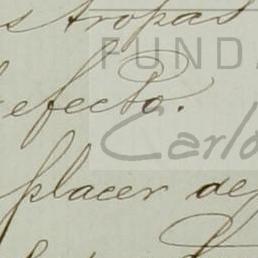 s tropas
efecto.
placer de
FUND
Carlo